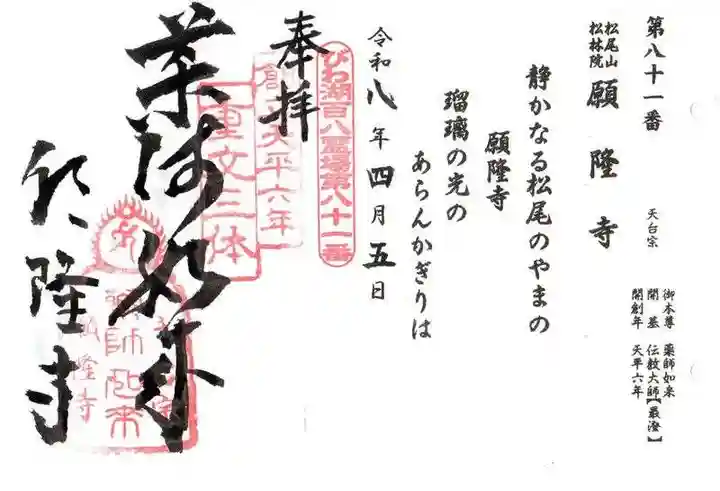 第八十一番
松尾山
松林院
願隆寺
天台宗
御本尊 薬師如来
開基 伝教大師【最澄】
開創年 天平六年
静かなる松尾のやまの
願隆寺
瑠璃の光の
あらんかぎりは
令和八年四月五日
びわ湖百八霊場第八十一番
奉拝
創立天平六年
重文三体
薬師如来
願隆寺